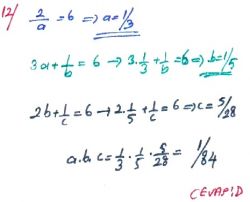 12/ 2/a = 6 => a = 1/3
3a + 1/b = 6 → 3.1/3 + 1/b = 6 => b = 1/5
2b + 1/c = 6 → 2.1/5 + 1/c = 6 => c = 5/28
a.b.c = 1/3 . 1/5 . 5/28 = 1/84
CEVAP: D